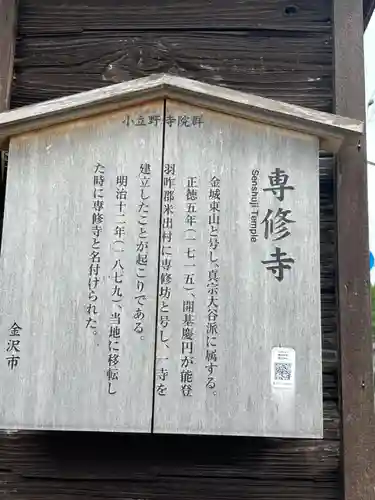 小立野寺院群
専修寺
Senshuji Temple
金城東山と号し、真宗大谷派に属する。
正徳五年（一七一五）、開基慶円が能登
羽咋郡米出村に専修坊と号し、一寺を
建立したことが起こりである。
明治十二年（一八七九）、当地に移転し
た時に専修寺と名付けられた。
金沢市